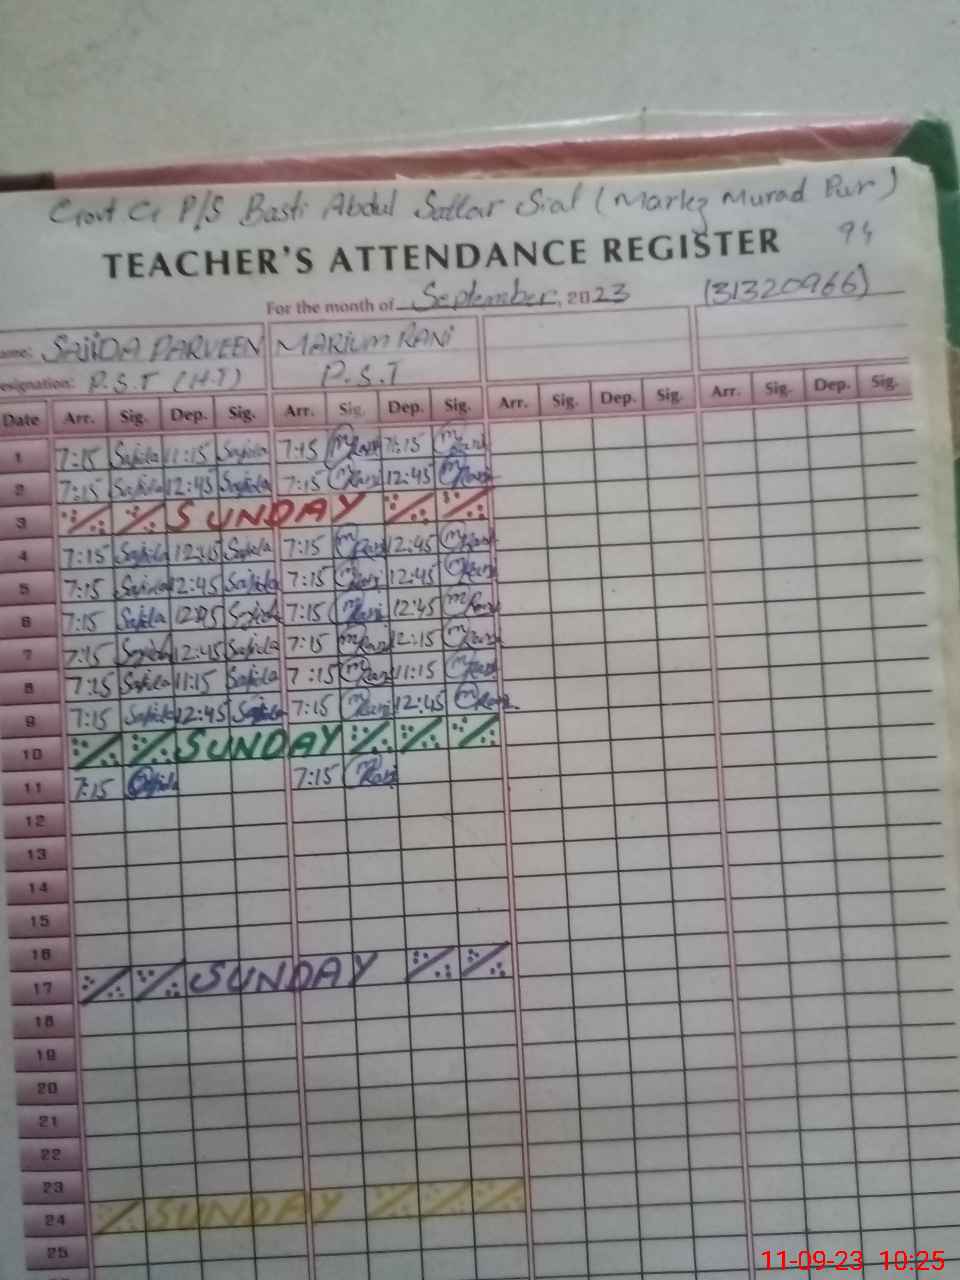 Govt G P/S Basti Abdul Sattar Sial (Markz Murad Pur)
TEACHER'S ATTENDANCE REGISTER 94
For the month of September, 2023 (31320966)
ame: SAJIDA PARVEEN MARIUM RANI
esignation: P.S.T (H.T) P.S.T
Date Arr. Sig. Dep. Sig. Arr. Sig. Dep. Sig. Arr. Sig. Dep. Sig. Arr. Sig. Dep. Sig.
1 7:15 Sajida 11:15 Sajida 7:15 MRani 11:15 MRani
2 7:15 Sajida 12:45 Sajida 7:15 MRani 12:45 MRani
3 SUNDAY
4 7:15 Sajida 12:45 Sajida 7:15 MRani 12:45 MRani
5 7:15 Sajida 12:45 Sajida 7:15 MRani 12:45 MRani
6 7:15 Sajida 12:45 Sajida 7:15 MRani 12:45 MRani
7 7:15 Sajida 12:45 Sajida 7:15 MRani 12:15 MRani
8 7:15 Sajida 11:15 Sajida 7:15 MRani 11:15 MRani
9 7:15 Sajida 12:45 Sajida 7:15 MRani 12:45 MRani
10 SUNDAY
11 7:15 Sajida 7:15 MRani
12
13
14
15
16
17 SUNDAY
18
19
20
21
22
23
24 SUNDAY
25
11-09-23 10:25